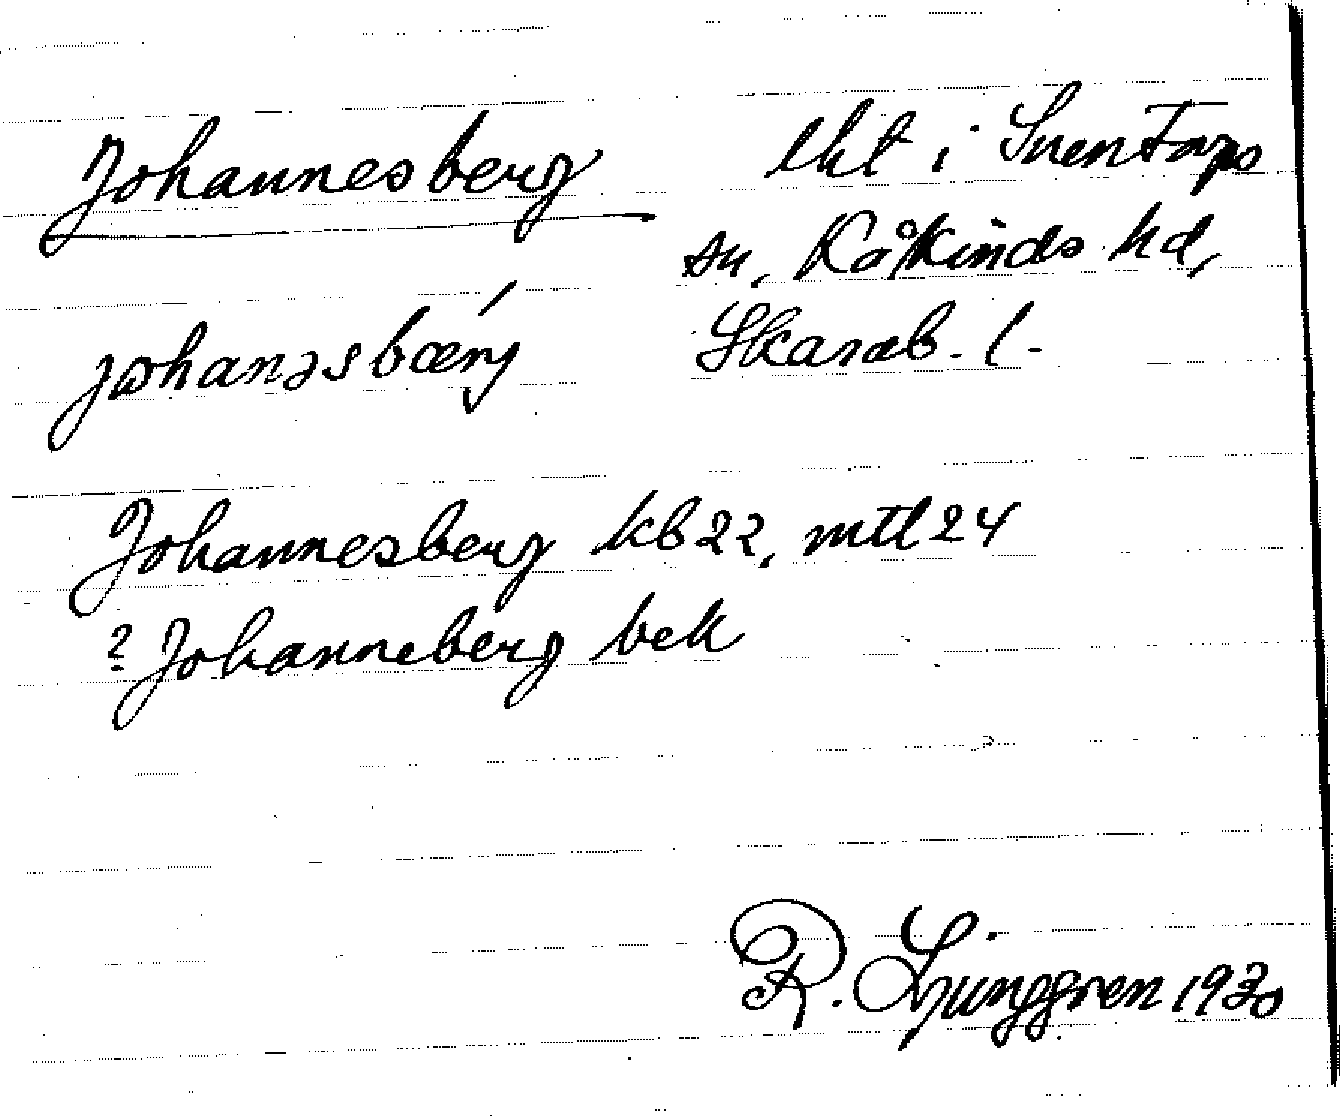 Johannesberg lht i Sventorps
sn, Kåkinds hd,
johanəsbærj Skarab. l.
Johannesberg kb 22, mtl 24
? Johanneberg bek
R. Ljunggren 1930